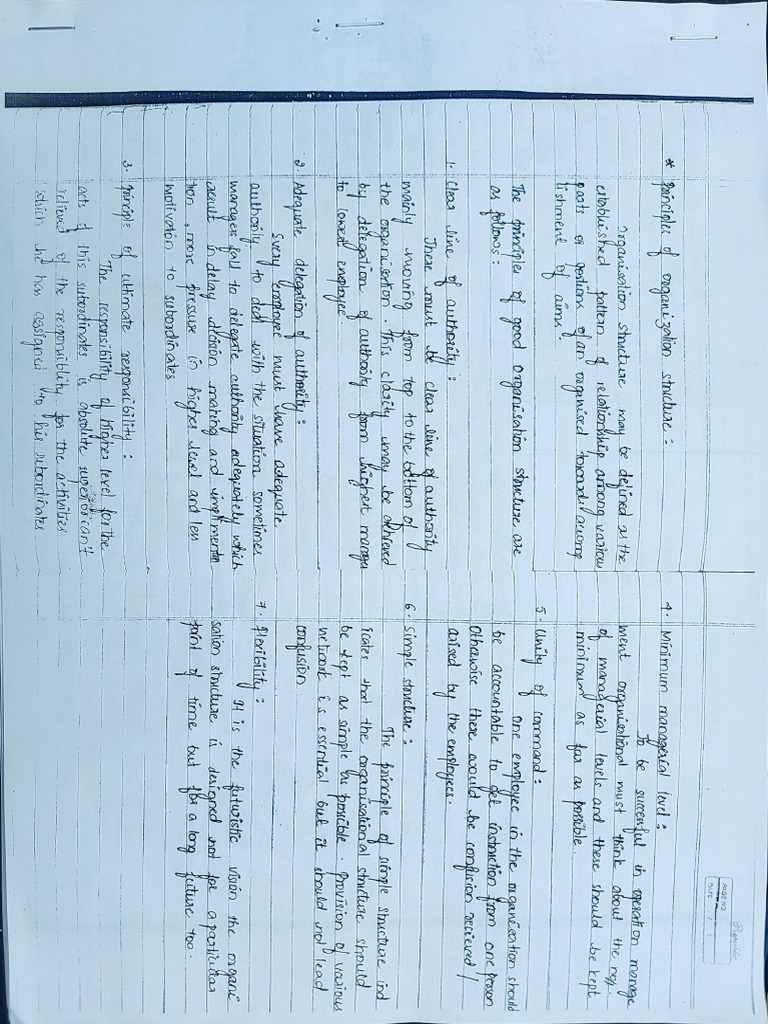 * Principles of organization structure :
Organisation structure may be defined as the
established pattern of relationship among various
parts or portions of an organised towards accomp
lishment of aims.
The principles of good organisation structure are
as follows :
1. Clear line of authority :
There must be clear line of authority
mainly moving from top to the bottom of
the organisation. This clarity may be achieved
by delegation of authority from highest manager
to lowest employee
2. Adequate delegation of authority :
Every employee must have adequate
authority to deal with the situation sometimes
managers fail to delegate authority adequately which
result in delay decision making and implimenta
tion, more pressure in higher level and less
motivation to subordinates
3. principle of ultimate responsibility :
The responsibility of higher level for the
acts of this subordinates is absolute superior can't
relieved of the responsiblity for the activities
which he has assigned to his subordinates
Page No
Date / /
4. Minimum managerial level :
To be successful in operation manage
ment organisational must think about the no.
of managerial levels and these should be kept
minimum as far as possible.
5. Unity of command :
One employee in the organisation should
be accountable to get instruction from one person
Otherwise there would be confusion recieved /
arised by the employees.
6. Simple structure :
The principle of simple structure ind
icates that the organisational structure should
be kept as simple as possible. provision of various
network is essential but it should not lead
confusion
7. Flexibility :
It is the futuristic vision the organi
sation structure is designed not for a particular
point of time but for a long future too.